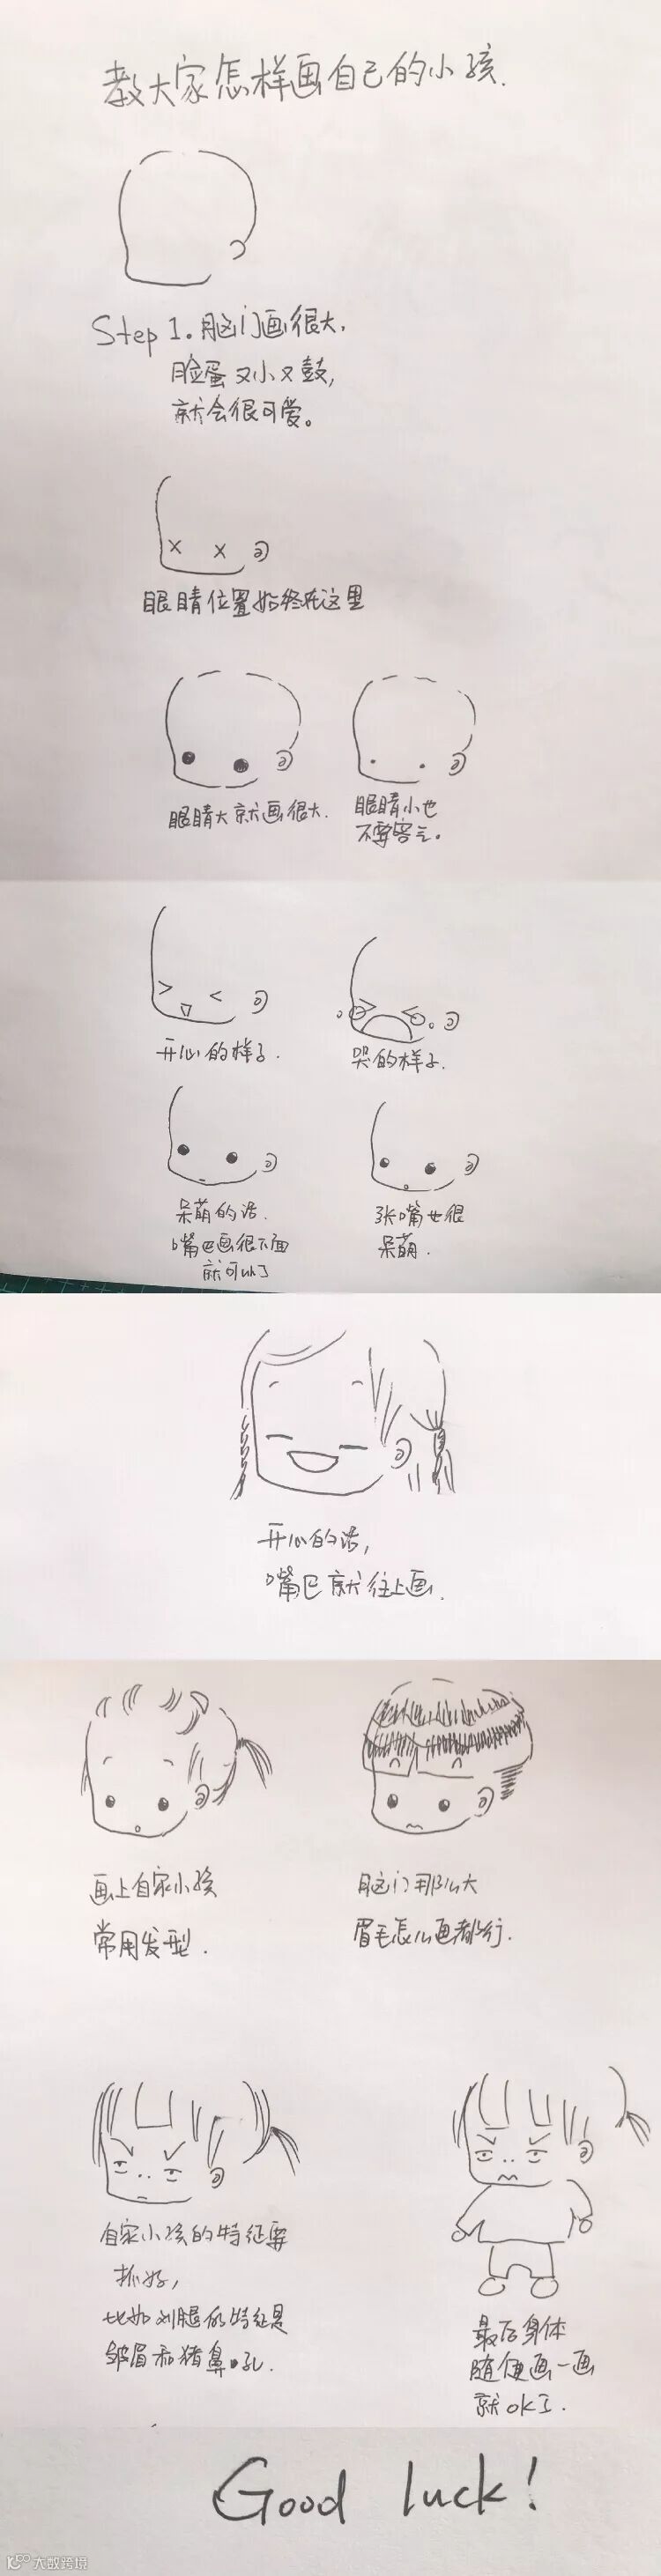 教大家怎样画自己的小孩.
Step 1. 脑门画很大,
脸蛋又小又鼓,
就会很可爱。
眼睛位置始终在这里
眼睛大就画很大.
眼睛小也
不要客气。
开心的样子.
哭的样子.
呆萌的话.
嘴巴画很下面
就可以了
张嘴也很
呆萌.
开心的话,
嘴巴就往上画.
画上自家小孩
常用发型.
脑门那么大
眉毛怎么画都行.
自家小孩的特征要
抓好,
比如刘腿的特征是
皱眉和猪鼻孔.
最后身体
随便画一画
就ok了.
Good luck!
大数跨境